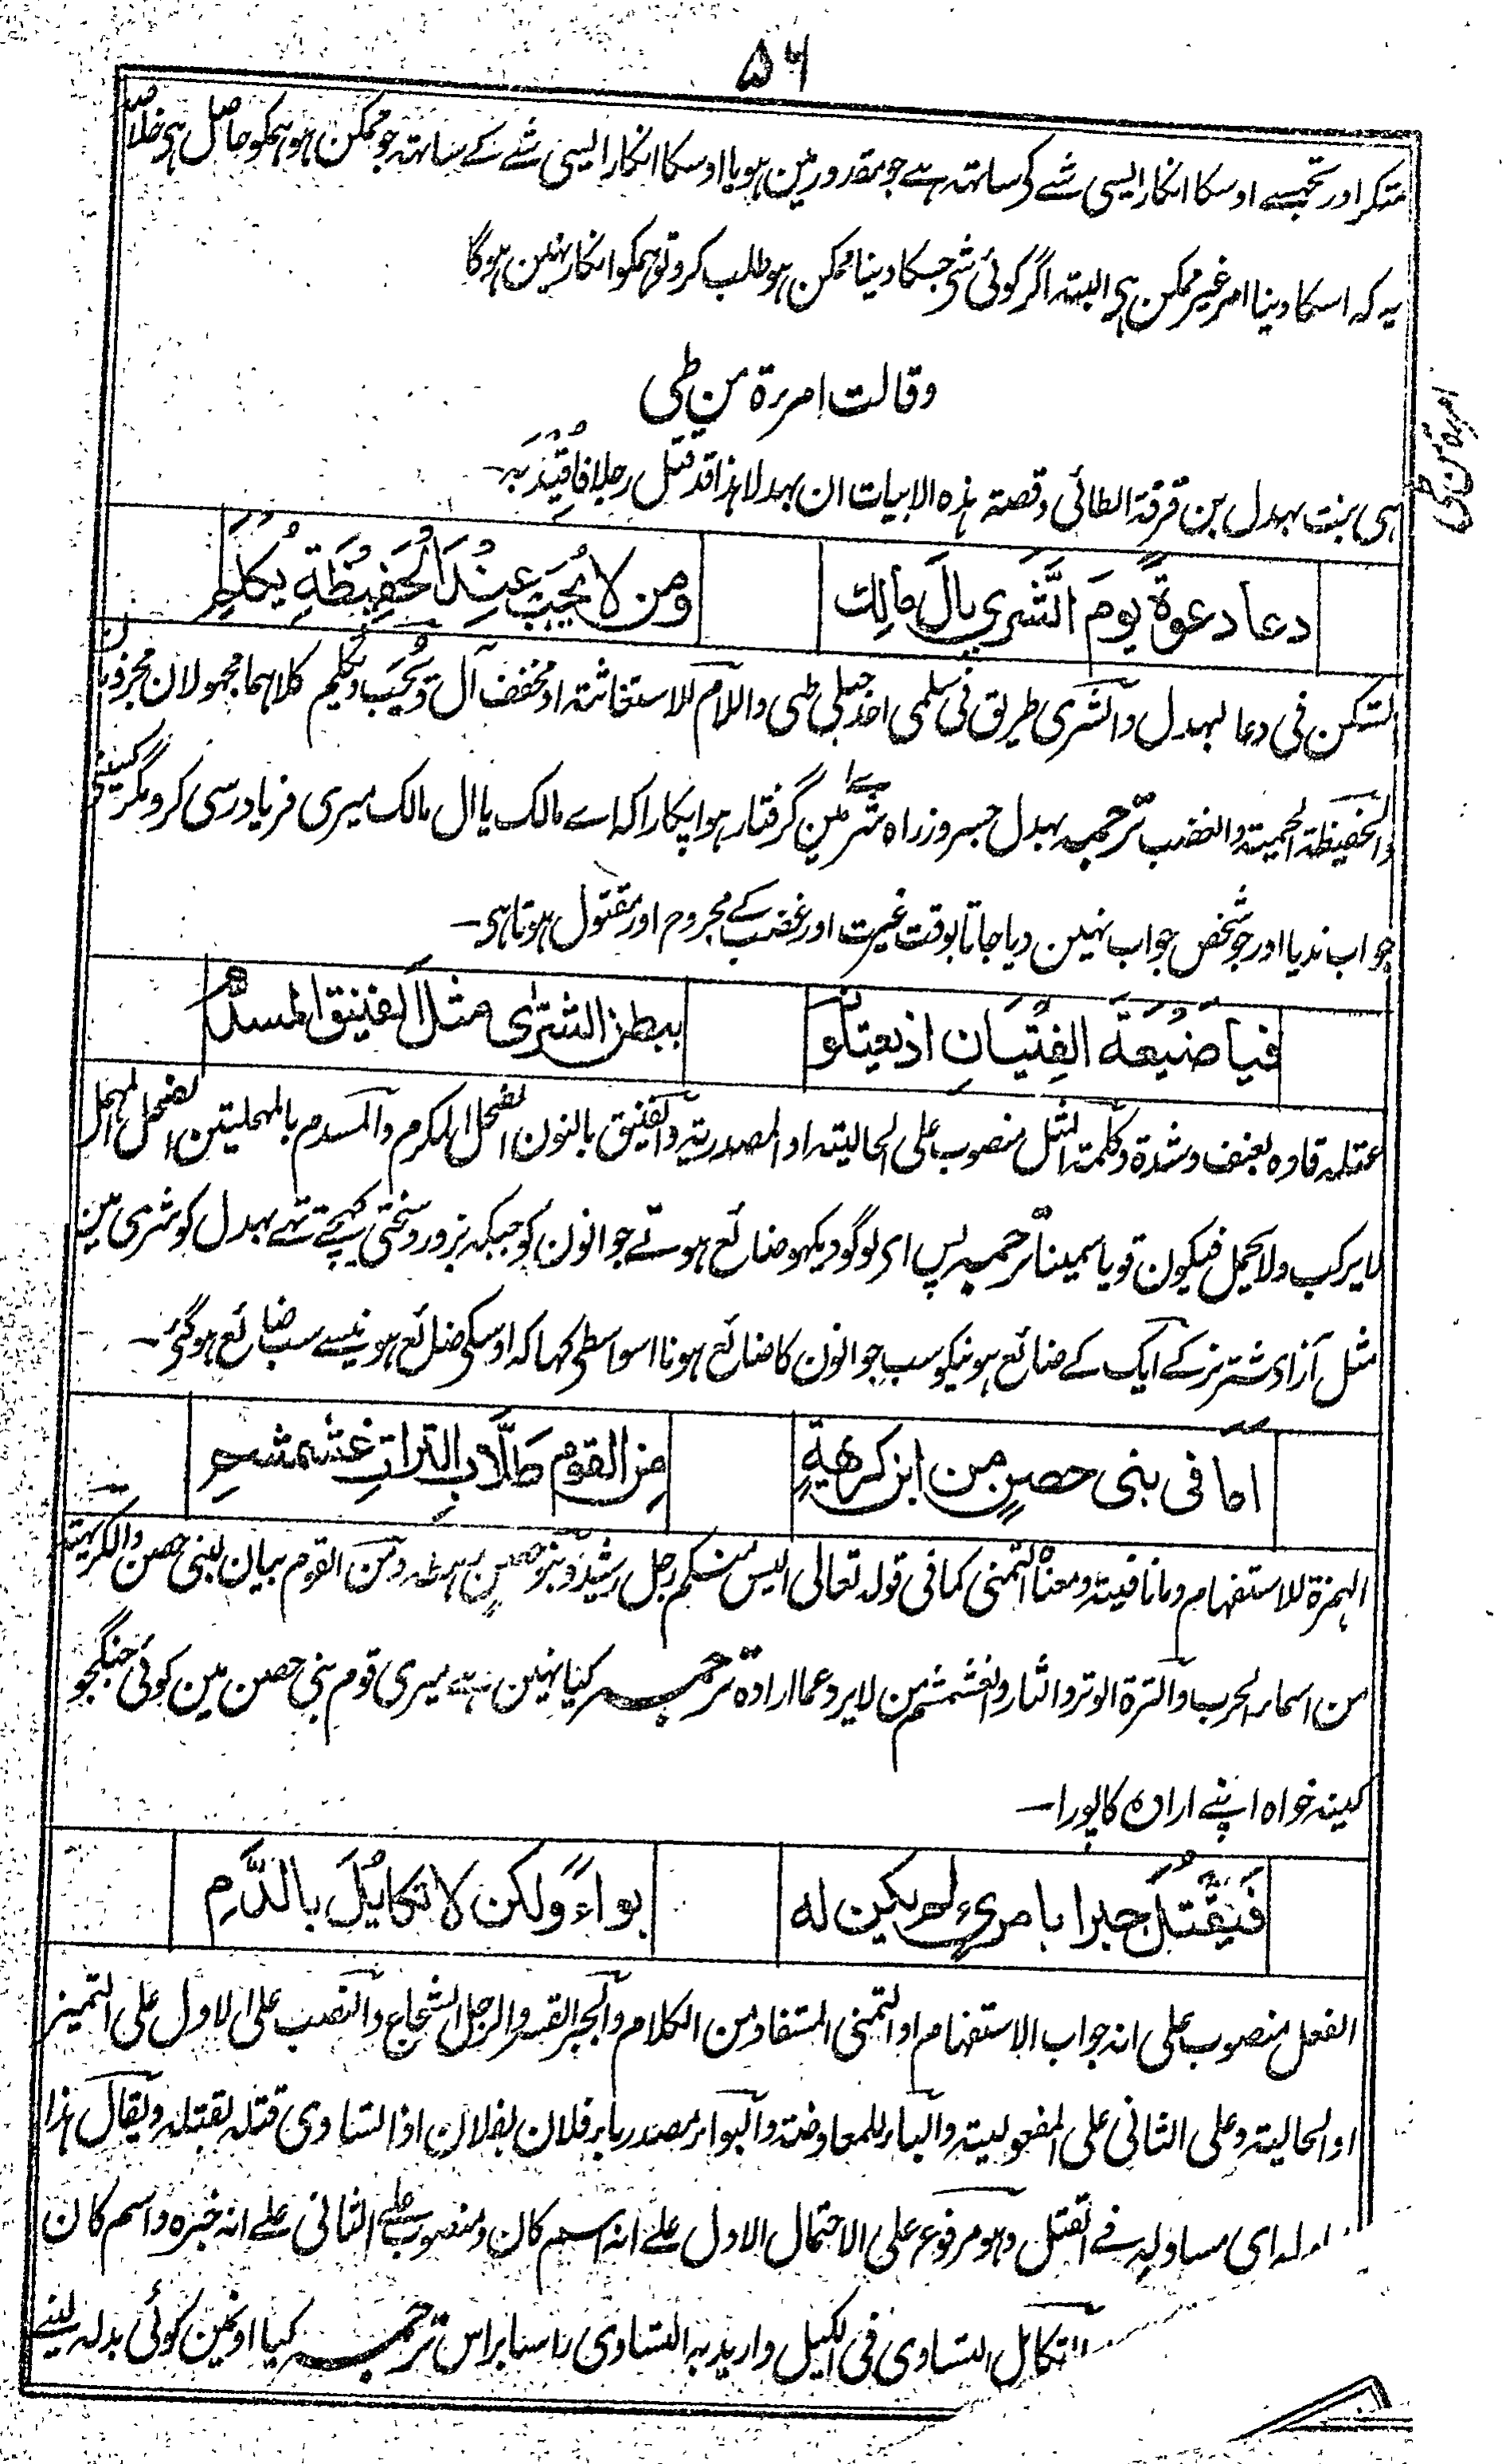 ۵۶
متکر اور تجہسے اوسکا انکار ایسی شے کی ساتہہ ہے جو مقدور مین ہو یا اوسکا انکار ایسی شے کے ساتہہ جو ممکن ہو ہمکو حاصل ہی خلاصہ
یہ کہ اسکا دینا امر غیر ممکن ہی البتہ اگر کوئی شی جسکا دینا ممکن ہو طلب کرو تو ہمکو انکار نہین ہوگا
وقالت امرءۃ من طی
امرءۃ من طی
ہی بنت بہدل بن قرفۃ الطائی وقصۃ ہذہ الابیات ان بہدلا ہذا قد قتل رجلا فاقتید بہ۔
دعا دعوةً يومَ الشَّرى يالَ مالك ومن لا يُجَبْ عِنْدَ الحَفِيظَةِ يُكْلَمِ
المستکن فی دعا لبہدل والشری طریق فی سلمی احد جبلی طی واللام للاستغاثۃ او مخفف آل ویجب ویکلم کلاہما مجہولان مجزومان
والحفیظۃ الحمیۃ والغضب ترجمہ بہدل جسروز راہ شرے مین گرفتار ہوا پکارا کہ اے مالک یا ال مالک میری فریادرسی کرو مگر کسینے
جواب ندیا اور جو شخص جواب نہین دیا جاتا بوقت غیرت اور غضب کے مجروح اور مقتول ہوتا ہی۔
فيا ضَيْعَةَ الفِتْيَانِ اذ يعتلونه ببطن الشرى مثلَ الفنيق المسدم
عتلہ قادہ بعنف وشدۃ وکلمۃ المثل منصوب علی الحالیۃ او المصدریۃ والفنیق بالنون الفحل المکرم والمسدم بالمہملیتین الفحل المہمل
لا یرکب ولا یحمل فیکون قویا سمینا ترجمہ پس ای لوگو دیکہو ضائع ہوتے جوانون کو جبکہ بزور وسختی کہیچتے تہے بہدل کو شری مین
مثل آزاد شتر نر کے ایک کے ضائع ہونیکو سب جوانون کا ضائع ہونا اسواسطی کہا کہ اوسکی ضائع ہونیسے سب ضائع ہوگئے۔
اما فى بنى حصنٍ من ابن كرهيةٍ مِن القوم طَلَّابِ التراتِ غشمشمِ
الہمزۃ للاستفہام وما نافیۃ ومعناہ التمنی کما فی قولہ تعالی الیس منکم رجل رشید وبنو حصن رہطہ ومن القوم بیان لبنی حصن والکریہۃ
من اسماء الحرب والترۃ الوتر والثار والغشمشم من لا یرد عما ارادہ ترجمہ کیا نہین ہے میری قوم بنی حصن مین کوئی جنگجو
کینہ خواہ اپنے ارادہ کا پورا۔
فَيَقْتُلَ جبرا بامرىءٍ لم يكن له بواءً ولكن لا تكايُلَ بالدَّمِ
الفعل منصوب علی انہ جواب الاستفہام او التمنی المستفاد من الکلام والجبر القسر والرجل الشجاع والنصب علی الاول علی التمیز
او الحالیۃ وعلی الثانی علی المفعولیۃ والباء للمعاوضۃ والبواء مصدر باء فلان بفلان اذا التساوی قتلہ بقتلہ ویقال ہذا
لہ ای مساو لہ فے القتل وہو مرفوع علی الاحتمال الاول علے انہ اسم کان ومنصوب علی الثانی علے انہ خبرہ واسم کان
التکایل التساوی فی الکیل وارید بہ التساوی راسا براس ترجمہ کیا اونمین کوئی بدلہ لینے